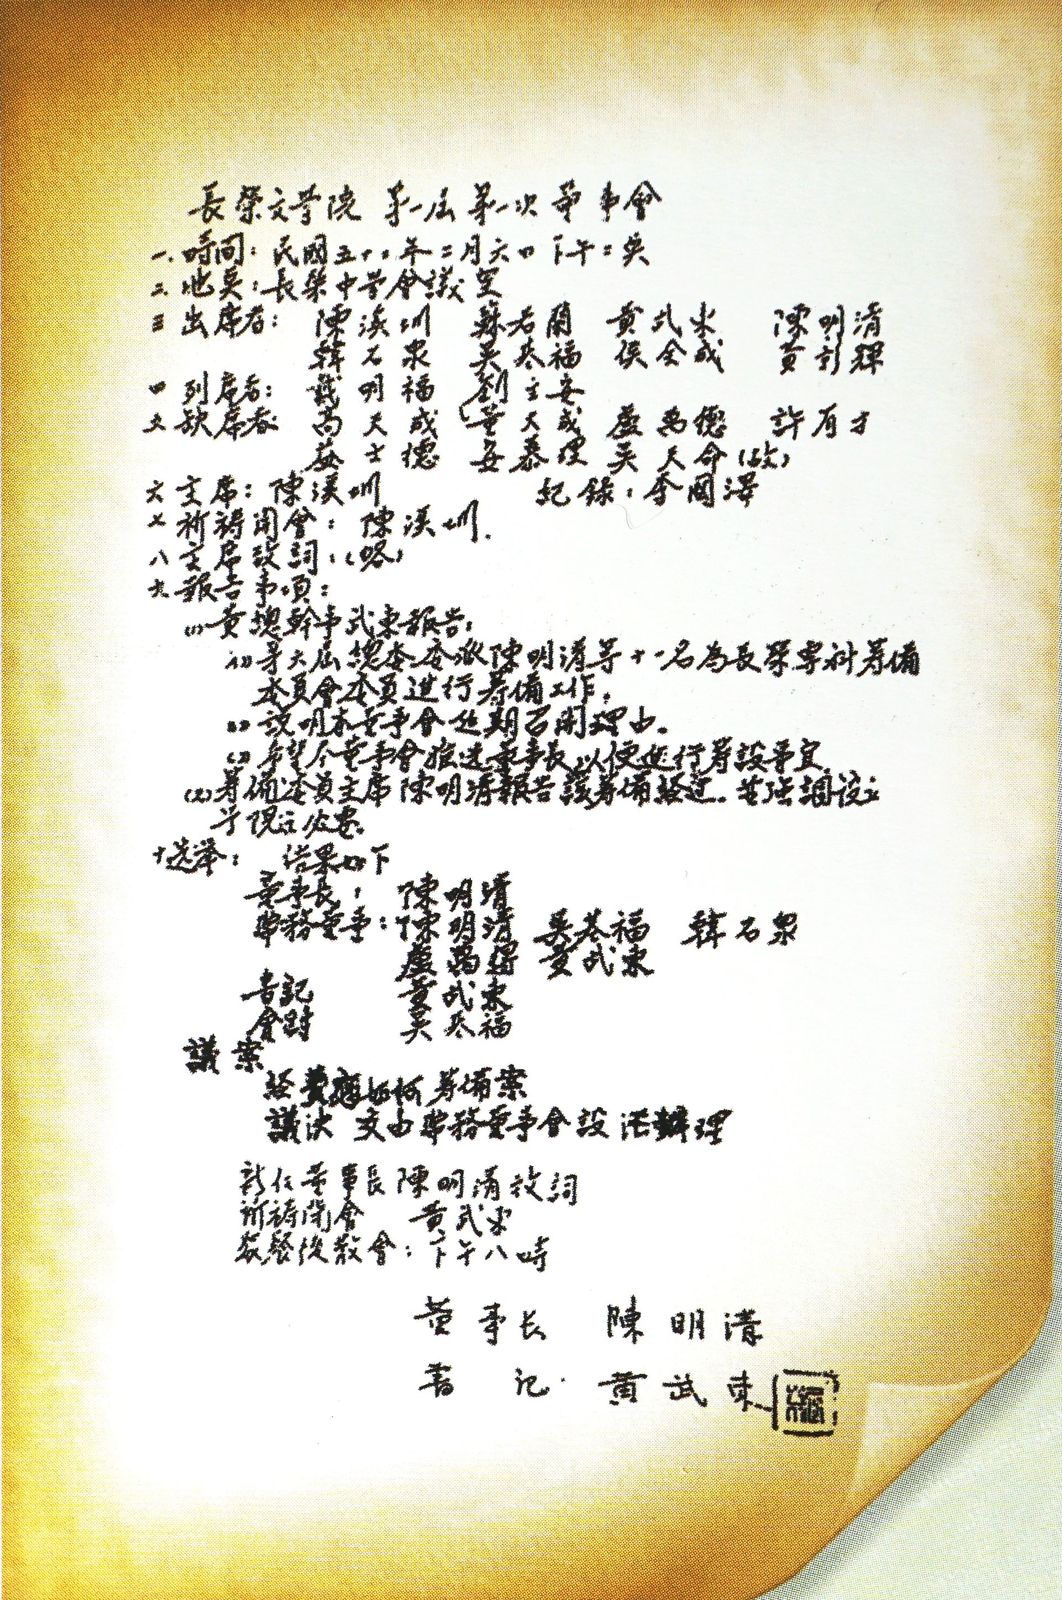 長榮文學院 第一屆第一次董事會
一、時間：民國五十 年二月六日下午二
二 地 ：長榮中學會議室
三 出席者： 陳溪圳 蘇若蘭 黃武東 陳明清
韓石泉 吳基福 侯全成 黃彰輝
四 列席者： 戴明福 劉主安
五 缺席者 高天成 董大成 盧萬德 許有才
蔡士德 安慕理 吳天命(故)
六 主席：陳溪圳 紀錄：李國澤
七 祈禱開會： 陳溪圳.
八 主席致詞：(略)
九 報告事項：
(1) 黃總幹事武東報告：
第六屆總委委派陳明清等十一名為長榮專科籌備
委員會委員進行籌備工作。
說明本董事會延期召開理由。
希望今董事會推選董事長，以便進行籌設事宜
(2) 籌備委員主席陳明清報告該籌備經過。並強調設立
學院之必要。
十 选举： 结果如下
董事長： 陳明清
常務董事：陳明清 吳基福 韓石泉
盧萬得 黃武東
書記 黃武東
會財 吳基福
議案
經費應如何籌備案
議決 交由常務董事會設法辦理
新任董事長陳明清致詞
祈禱閉會 黃武東
餐後散會：下午八時
董事長 陳明清
書記 黃武東